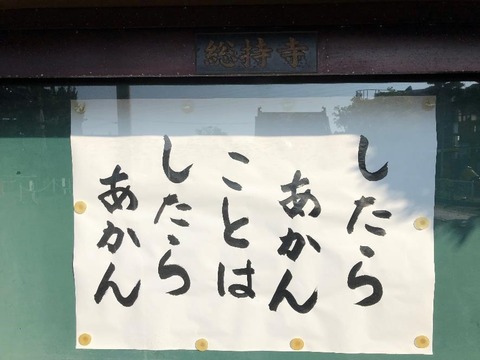 総持寺
したら
あかん
ことは
したら
あかん